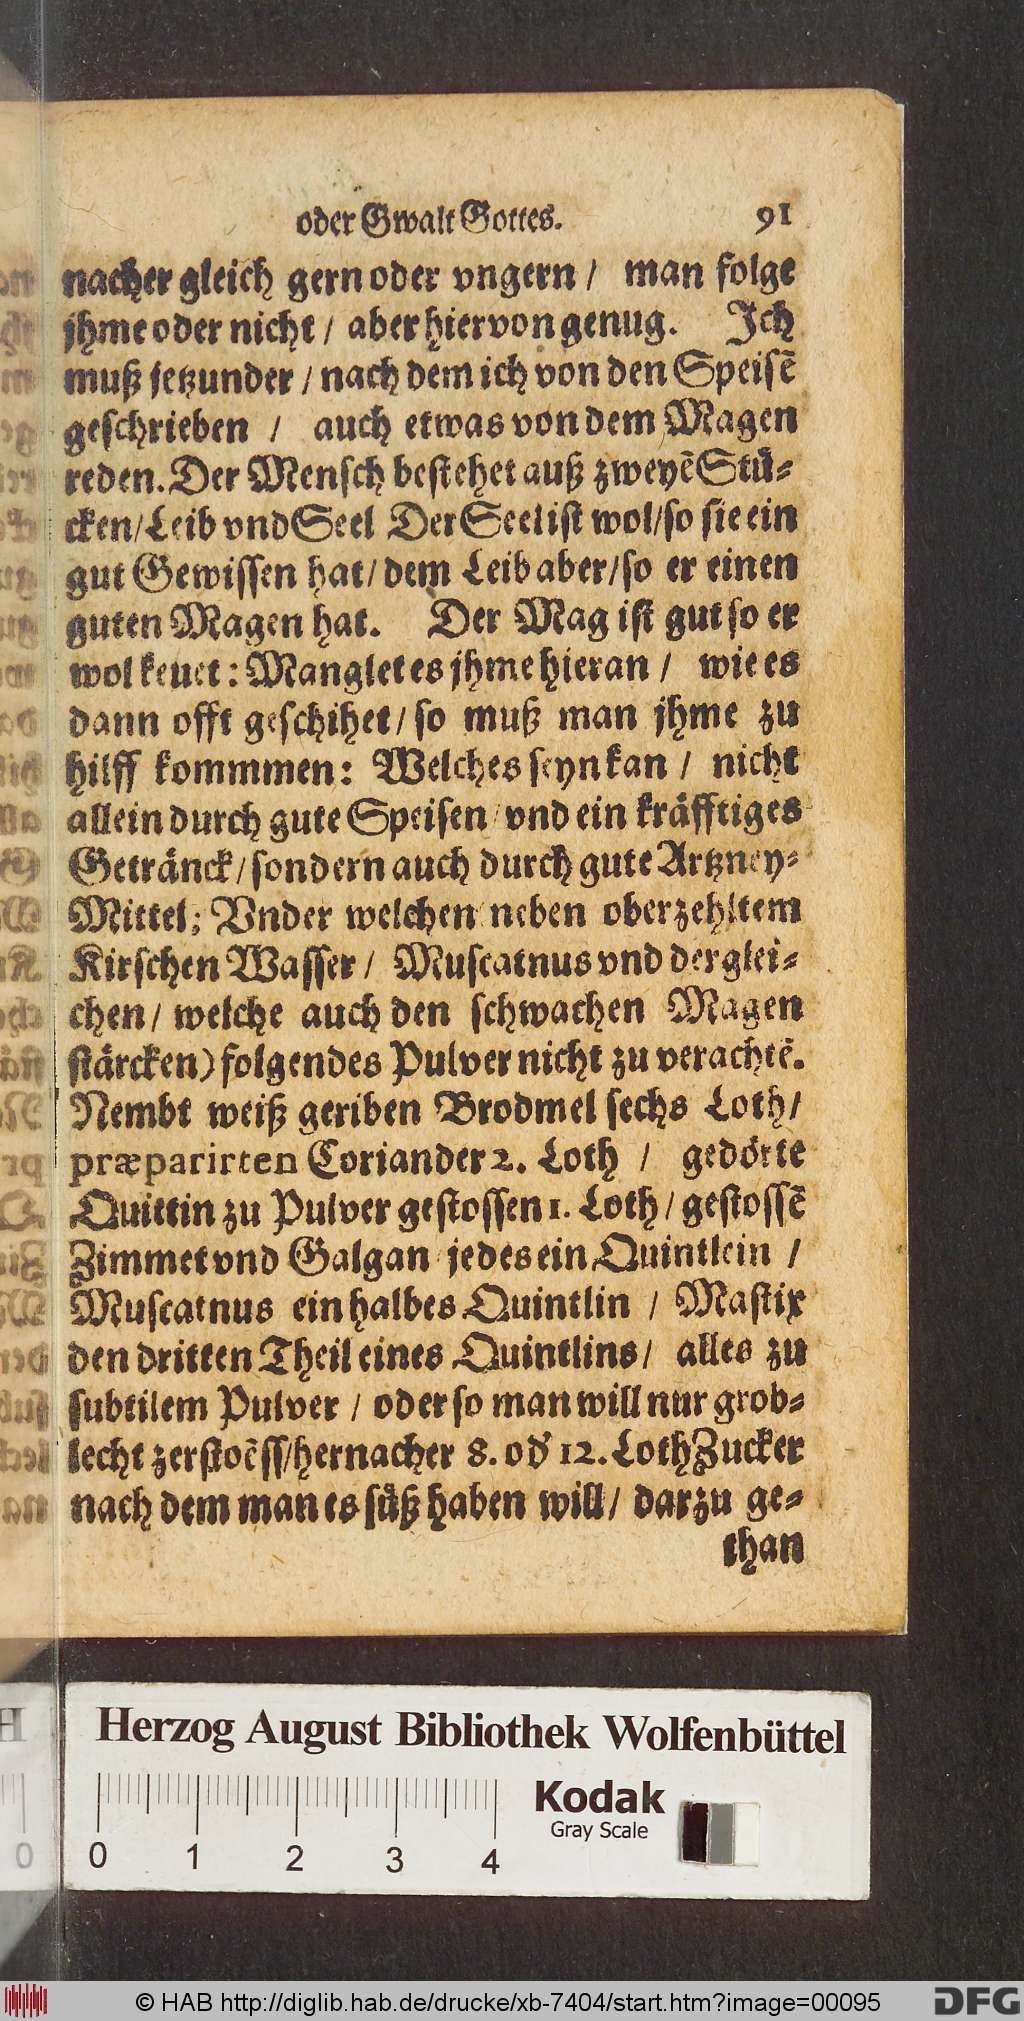 oder Gwalt Gottes. 91
nacher gleich gern oder vngern / man folge
jhme oder nicht / aber hiervon genug. Ich
muß jetzunder / nach dem ich von den Speisẽ
geschrieben / auch etwas von dem Magen
reden. Der Mensch bestehet auß zweyẽ Stü-
cken / Leib vnd Seel Der Seel ist wol / so sie ein
gut Gewissen hat / dem Leib aber / so er einen
guten Magen hat. Der Mag ist gut so er
wol keuet : Manglet es jhme hieran / wie es
dann offt geschihet / so muß man jhme zu
hilff kommmen : Welches seyn kan / nicht
allein durch gute Speisen / vnd ein kräfftiges
Getränck / sondern auch durch gute Artzney-
Mittel; Vnder welchen neben oberzehltem
Kirschen Wasser / Muscatnus vnd derglei-
chen / welche auch den schwachen Magen
stärcken) folgendes Pulver nicht zu verachtẽ.
Nembt weiß geriben Brodmel sechs Loth /
præparirten Coriander 2. Loth / gedörte
Quittin zu Pulver gestossen 1. Loth / gestossẽ
Zimmet vnd Galgan jedes ein Quintlein /
Muscatnus ein halbes Quintlin / Mastix
den dritten Theil eines Quintlins / alles zu
subtilem Pulver / oder so man will nur grob-
lecht zerstoẽss / hernacher 8. od' 12. Loth Zucker
nach dem man es süß haben will / darzu ge-
than
Herzog August Bibliothek Wolfenbüttel
Kodak
Gray Scale
0 0 1 2 3 4
© HAB http://diglib.hab.de/drucke/xb-7404/start.htm?image=00095
DFG